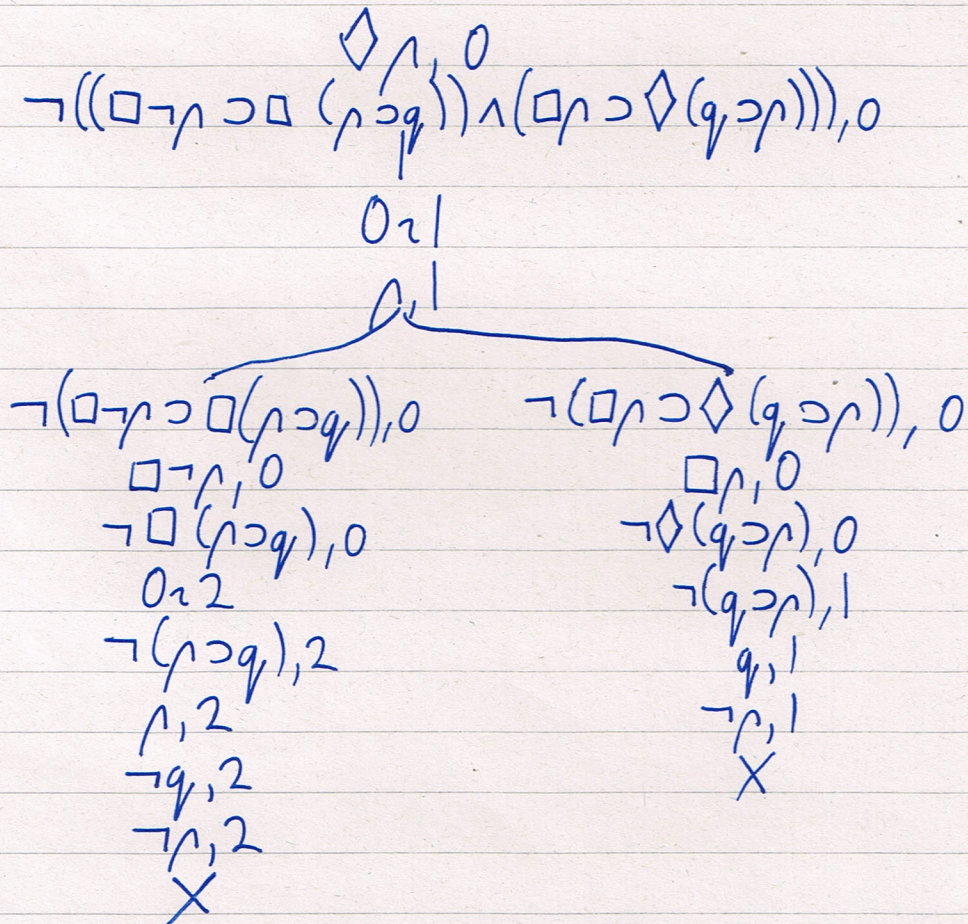 ◇p, 0
¬((□¬p ⊃ □ (p ⊃ q)) ∧ (□p ⊃ ◇(q ⊃ p))), 0
0r1
p, 1
¬(□¬p ⊃ □(p ⊃ q)), 0
□¬p, 0
¬□(p ⊃ q), 0
0r2
¬(p ⊃ q), 2
p, 2
¬q, 2
¬p, 2
X
¬(□p ⊃ ◇(q ⊃ p)), 0
□p, 0
¬◇(q ⊃ p), 0
¬(q ⊃ p), 1
q, 1
¬p, 1
X